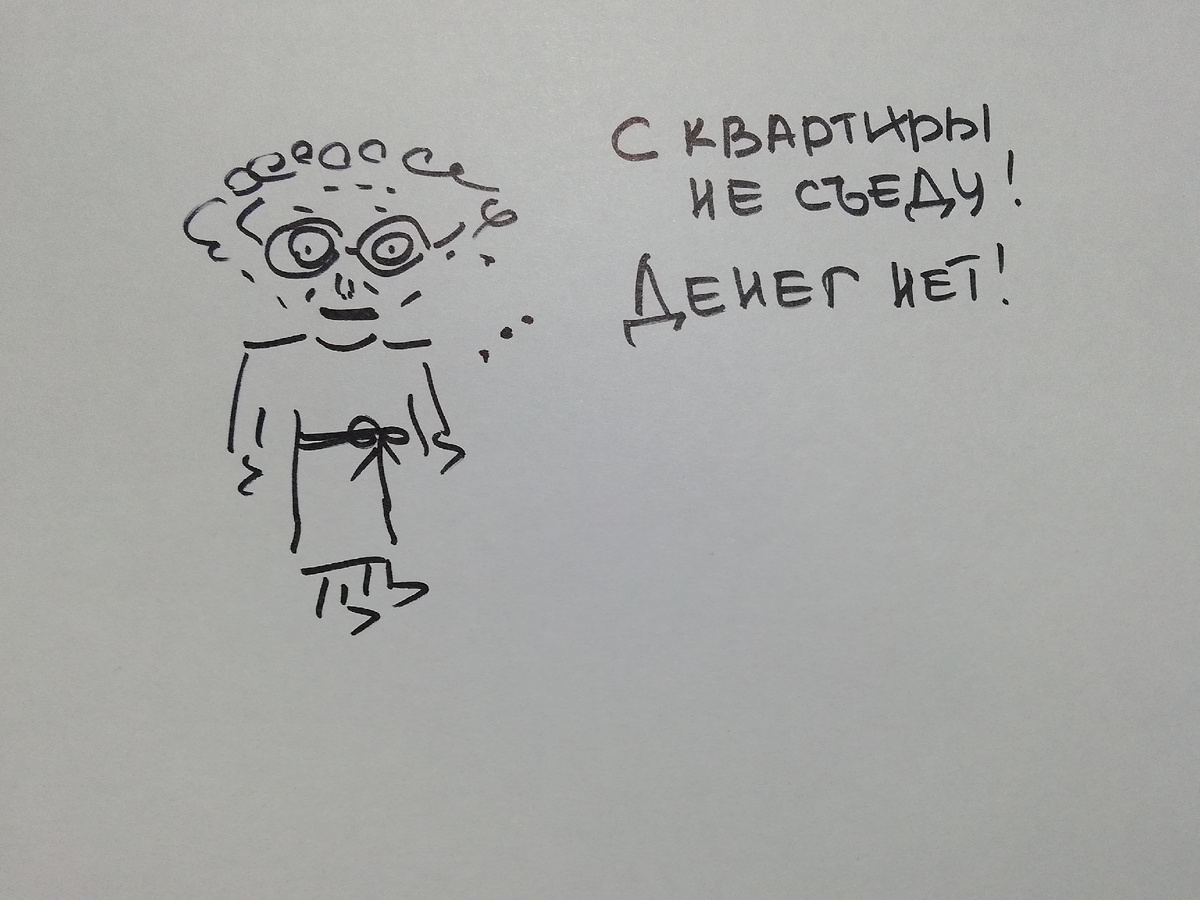 С КВАРТИРЫ
НЕ СЪЕДУ!
ДЕНЕГ НЕТ!